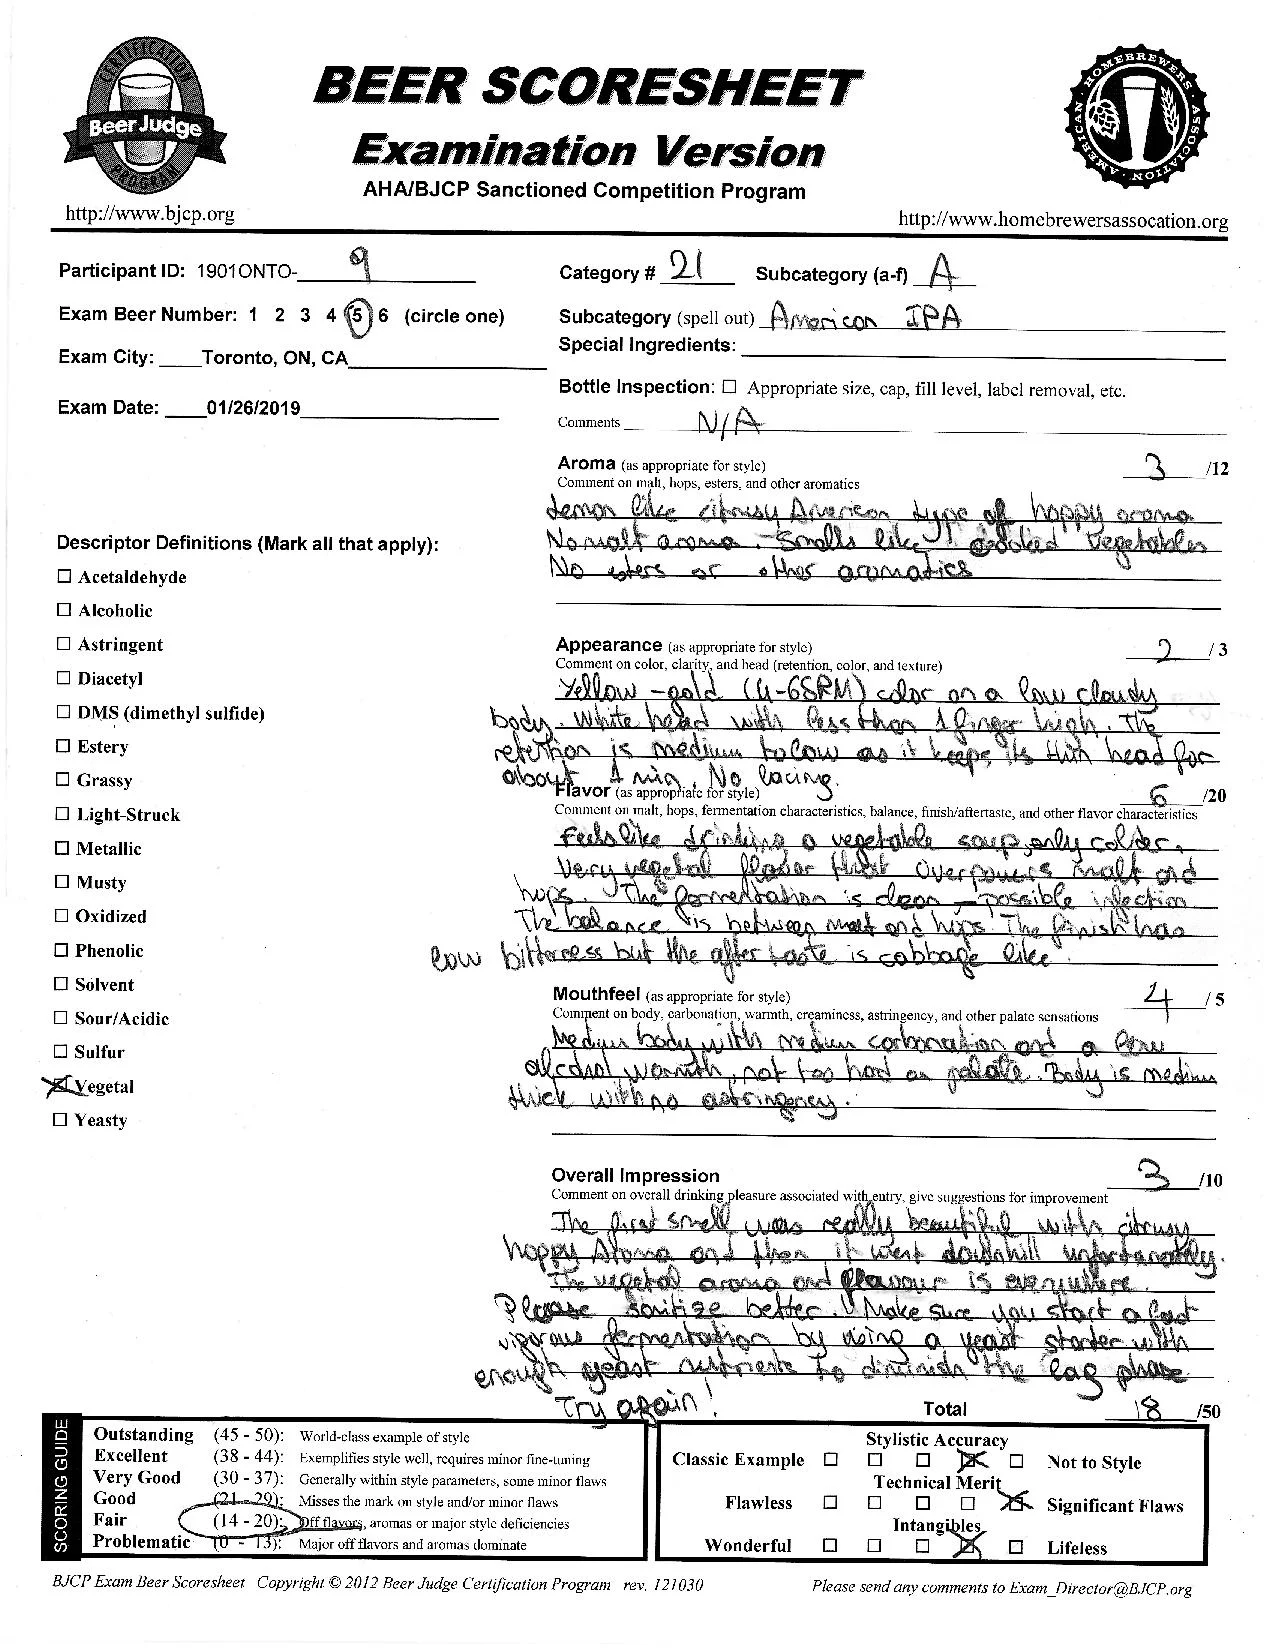 CERTIFICATION
Beer Judge
PROGRAM
http://www.bjcp.org
BEER SCORESHEET
Examination Version
AHA/BJCP Sanctioned Competition Program
AMERICAN HOMEBREWERS ASSOCIATION
http://www.homebrewersassocation.org
Participant ID: 1901ONTO- 9
Exam Beer Number: 1 2 3 4 5 6 (circle one)
Exam City: Toronto, ON, CA
Exam Date: 01/26/2019
Category # 21 Subcategory (a-f) A
Subcategory (spell out) American IPA
Special Ingredients:
Bottle Inspection: ☐ Appropriate size, cap, fill level, label removal, etc.
Comments N/A
Descriptor Definitions (Mark all that apply):
☐ Acetaldehyde
☐ Alcoholic
☐ Astringent
☐ Diacetyl
☐ DMS (dimethyl sulfide)
☐ Estery
☐ Grassy
☐ Light-Struck
☐ Metallic
☐ Musty
☐ Oxidized
☐ Phenolic
☐ Solvent
☐ Sour/Acidic
☐ Sulfur
☒ Vegetal
☐ Yeasty
Aroma (as appropriate for style) 3 /12
Comment on malt, hops, esters, and other aromatics
Lemon like citrusy American type of hoppy aroma
No malt aroma. Smells like cooked vegetables
No esters or other aromatics
Appearance (as appropriate for style) 2 /3
Comment on color, clarity, and head (retention, color, and texture)
Yellow-gold (4-6SRM) color on a low cloudy
body. White head with less than 1 finger high. The
retention is medium to low as it keeps its thin head for
about 1 min. No lacing.
Flavor (as appropriate for style) 6 /20
Comment on malt, hops, fermentation characteristics, balance, finish/aftertaste, and other flavor characteristics
Feels like drinking a vegetable soup, only colder.
Very vegetal flavor that overpowers malt and
hops. The fermentation is clean - possible infection
The balance is between malt and hops. The finish has
low bitterness but the after taste is cabbage like.
Mouthfeel (as appropriate for style) 4 /5
Comment on body, carbonation, warmth, creaminess, astringency, and other palate sensations
Medium body with medium carbonation and a low
alcohol warmth, not too hard on palate. Body is medium
thick with no astringency.
Overall Impression 3 /10
Comment on overall drinking pleasure associated with entry, give suggestions for improvement
The first smell was really beautiful with citrusy
hoppy Aroma and then it went downhill unfortunately.
The vegetal aroma and flavour is everywhere.
Please sanitize better. Make sure you start a fast
vigorous fermentation by using a yeast starter with
enough yeast nutrients to diminish the lag phase
Try again!
Total 18 /50
SCORING GUIDE
Outstanding (45 - 50): World-class example of style
Excellent (38 - 44): Exemplifies style well, requires minor fine-tuning
Very Good (30 - 37): Generally within style parameters, some minor flaws
Good (21 - 29): Misses the mark on style and/or minor flaws
Fair (14 - 20): Off flavors, aromas or major style deficiencies
Problematic (0 - 13): Major off flavors and aromas dominate
Stylistic Accuracy
Classic Example ☐ ☐ ☐ ☒ ☐ Not to Style
Technical Merit
Flawless ☐ ☐ ☐ ☐ ☒ Significant Flaws
Intangibles
Wonderful ☐ ☐ ☐ ☒ ☐ Lifeless
BJCP Exam Beer Scoresheet Copyright © 2012 Beer Judge Certification Program rev. 121030
Please send any comments to Exam_Director@BJCP.org